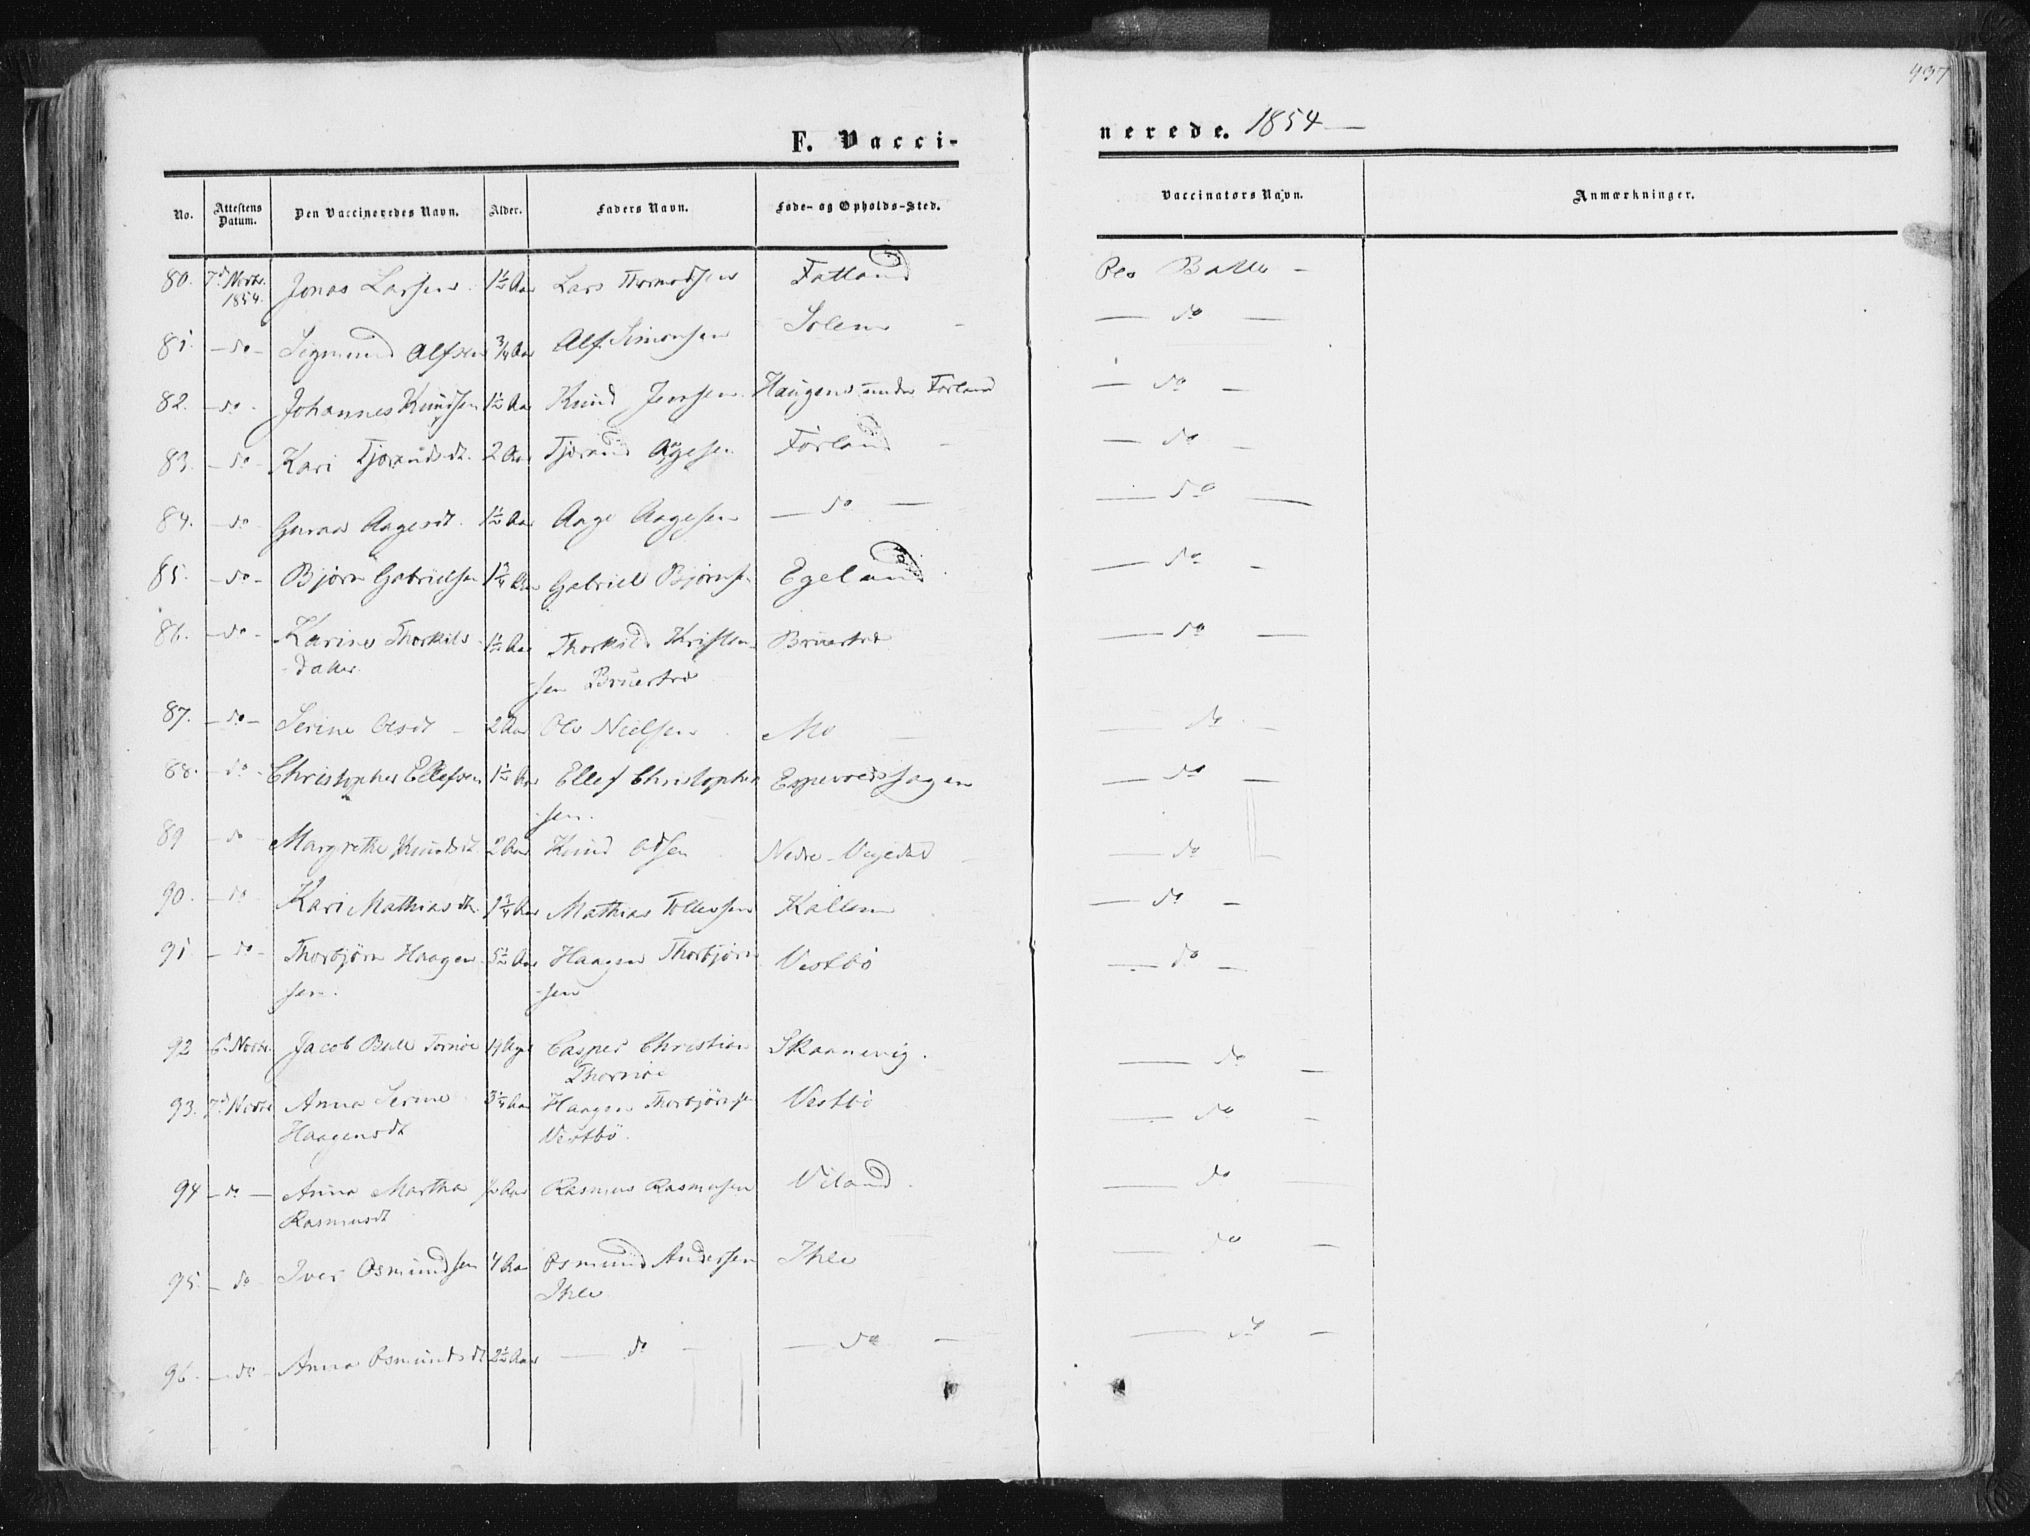 437
F. Vacci-
nerede. 1854 —
No. Attestens Datum. Den Vaccineredes Navn. Alder. Faders Navn. Føde- og Opholds-Sted. Vaccinators Navn. Anmærkninger.
80. 7d Novbr. 1854. Jonas Larsen 1½ Aar Lars Tormodsen Fatland
81. — do — Sigmund Alfsen ¾ Aar Alf Simonsen Solem — do —
82. — do — Johannes Knudsen 1½ Aar Knud Jensen Haugen under Førland — do —
83. — do — Kari Tjerandsdt. 2 Aar Tjerand Aagesen Førland — do —
84. — do Guraa Aagesdt. 1½ Aar Aage Aagesen — do — — do —
85. — do — Bjørn Gabrielsen 1¾ Aar Gabriel Bjørnsen Egeland — do —
86. — do — Karine Thorkils- 1½ Aar Thorkild Kristen- Bruestad — do —
datter sen Bruestad
87. — do — Serine Olsdt — 2 Aar Ole Nielsen Mo — do —
88. — do — Christopher Ellefsen 1½ Aar Ellef Christopher Espevoldshagen — do —
sen.
89 — do — Margrethe Knudsdt 2 Aar Knud Nedre-Vagedal — do —
90. — do Kari Mathiasdtr. 1¾ Aar Mathias Tollefsen Kallem — do —
91 — do — Thorbjørn Haagen 5½ Aar Haagen Thorbjørn Vestbø — do —
sen. sen
92 6d Novbr. Jacob Bull Tornøe 14 Uger Casper Christian Skaanevig. — do —
Thornøe
93. 7d Novbr Anna Serine 3¼ Aar Haagen Thorbjørnsen Vestbø — do —
Haagensdt Vestbø.
94 — do — Anna Martha ½ Aar Rasmus Rasmusen Viland — do —
Rasmusdt
95. — do Iver Osmundsen 4 Aar Osmund Andersen Ihle — do —
Ihle
96. — do — Anna Osmundsdt 2½ Aar — do — — do — — do —